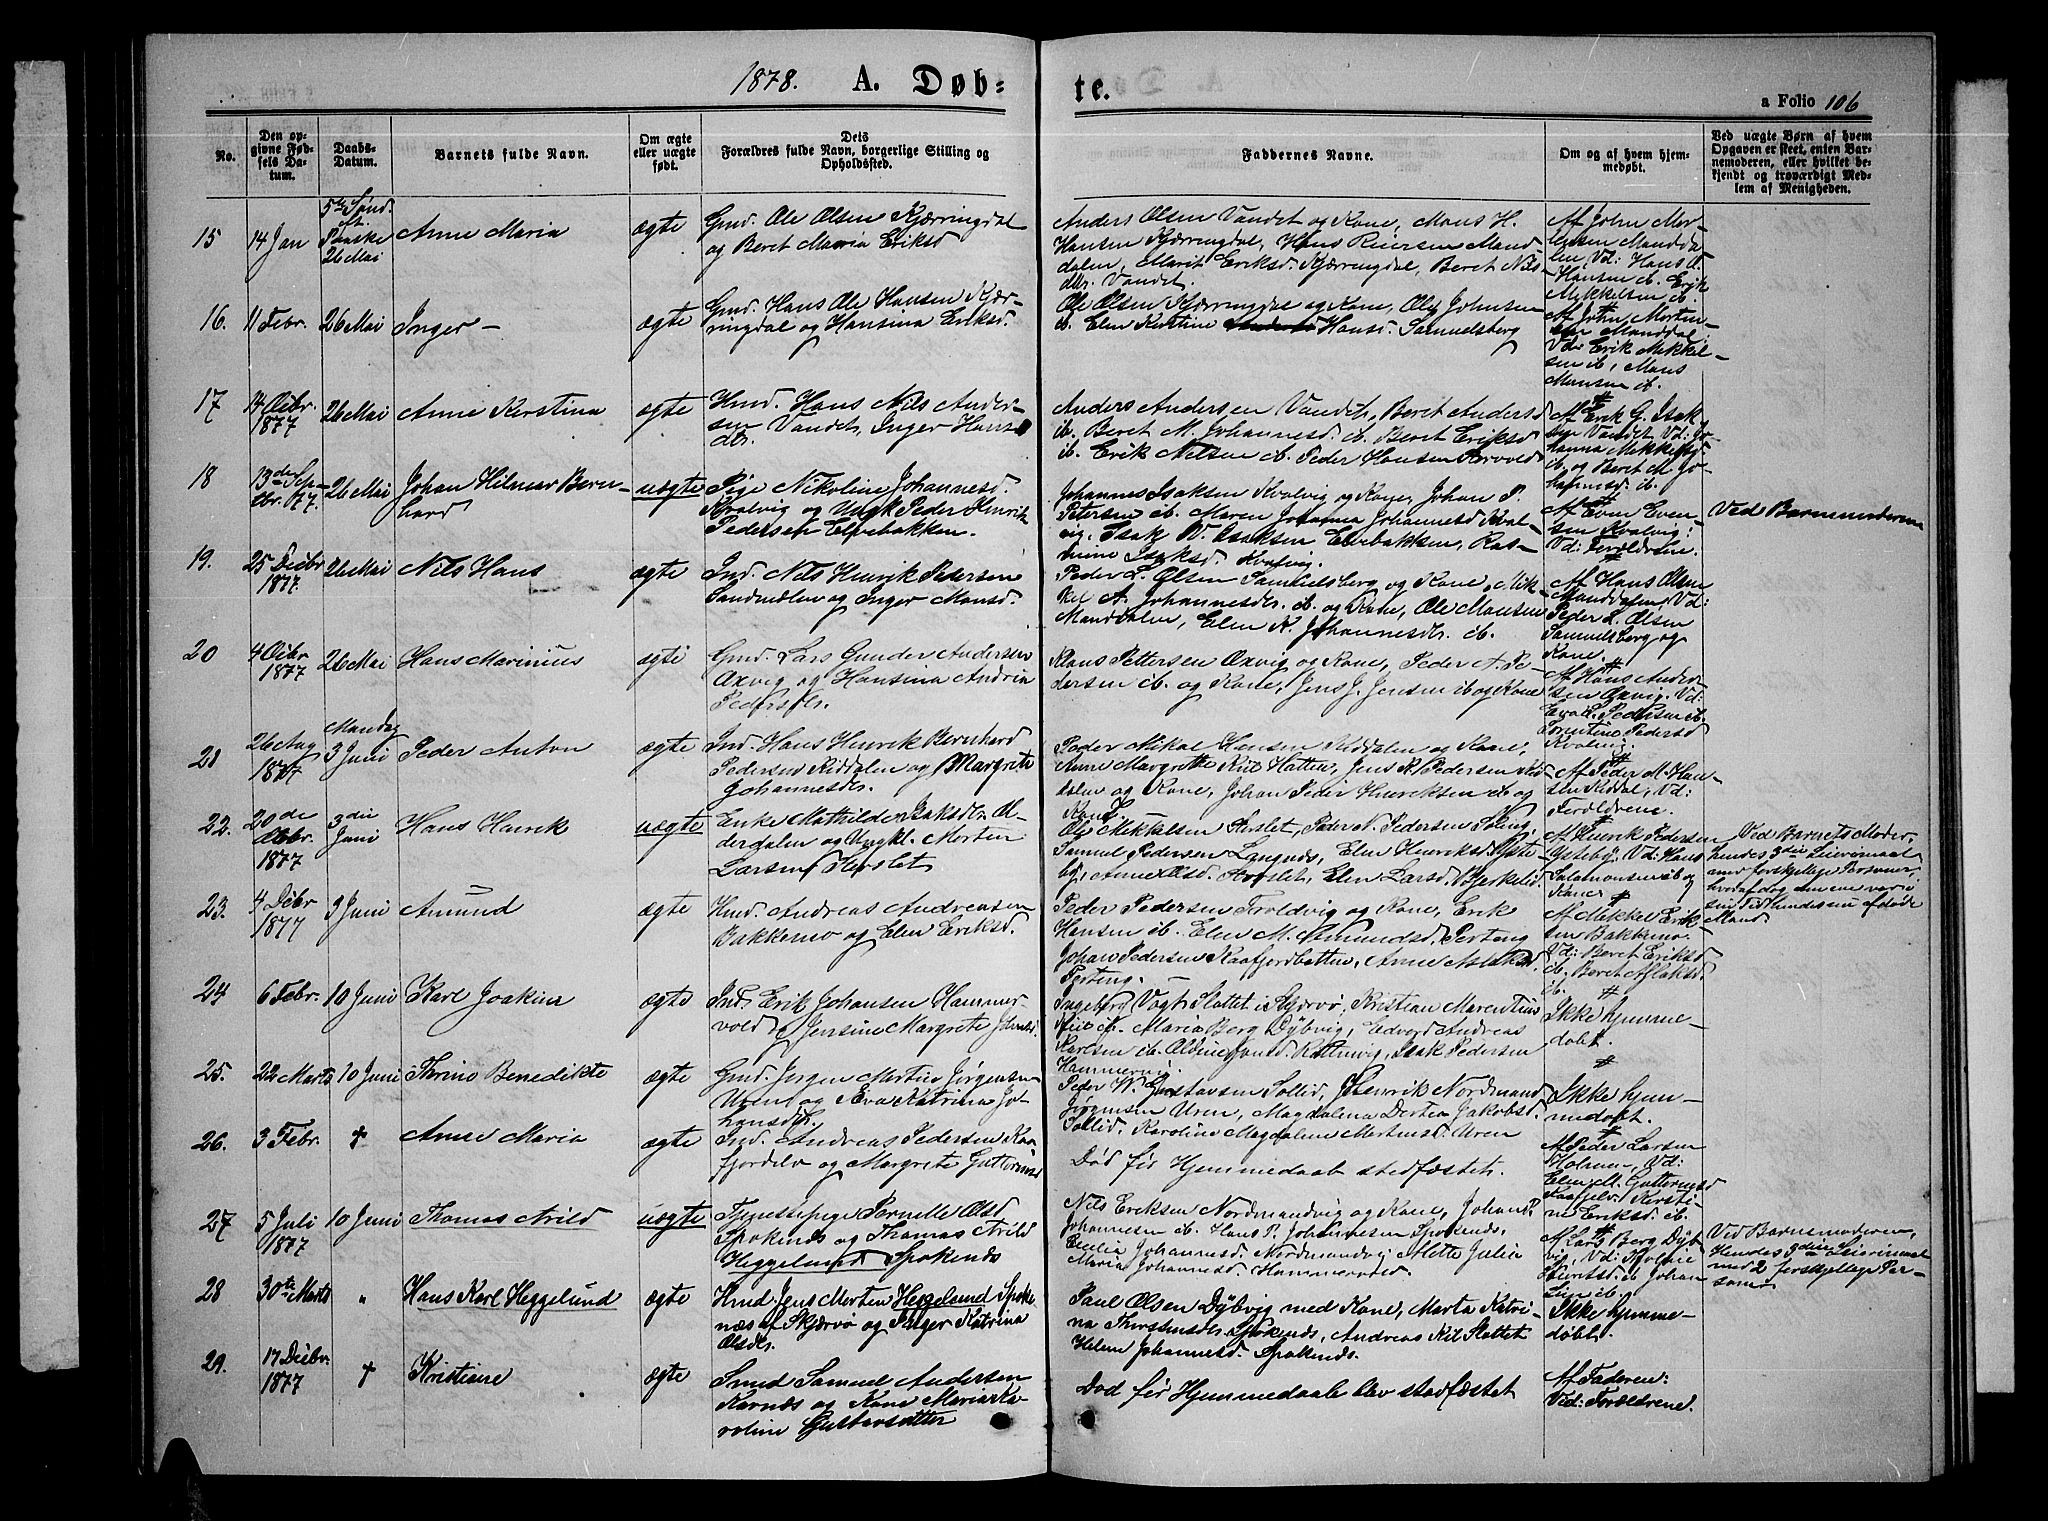 1878. A. Døb= te. a Folio 106
No.
Den op-
givne Fød-
sels Da-
tum.
Daabs-
Datum.
Barnets fulde Navn.
Om ægte
eller uægte
født.
Dets
Forældres fulde Navn, borgerlige Stilling og
Opholdssted.
Faddernes Navne.
Om og af hvem hjem-
medøbt.
Ved uægte Børn af hvem
Opgaven er skeet, enten Bar-
nemoderen, eller hvilket be-
kjendt og troværdigt Med-
lem af Menigheden.
15
14 Jan
5te Sønd.
eft
Paaske
26 Mai
Anne Maria
ægte
Gmd. Ole Olsen Kjærringdal
og Beret Maria Eriksd
Anders Olsen Vandet og Kone, Mons H.
Hansen Kjærringdal, Hans Reiersen Mand-
dalen, Marit Eriksd. Kjærringdal, Beret Nils-
dtr. Vandet.
Af John Mor-
tensen Mandda-
len, Vd: Hans O.
Hansen ib. Erik
Mikkelsen ib.
16.
11 Febr.
26 Mai
Inger -
ægte
Gmd. Hans Ole Hansen Kjær-
ringdal og Hansina Eriksd.
Ole Olsen Kjærringdal og Kone, Ole Johnsen
ib. Elen Kirstine Hansd. Samuelsberg
Af John Morten-
sen Manddal.
Vd: Erik Mikkel-
sen ib, Mons
Monsen ib.
17
14 Octbr.
1877
26 Mai
Anne Kirstina
ægte
Hmd. Hans Nils Ander-
sen Vandet, Inger Hans
dtr.
Anders Andersen Vandet, Beret Andersd
ib. Beret M. Johannesd. ib. Beret Eriksd
ib. Erik Nilsen ib. Peder Hansen Rørvold
Af Erik G. Isak
sen Vandet, Vd: Jo-
hanna Mikkelsd
ib. og Beret M. Jo-
hannesd. ib.
18
13de Sep-
tbr. 77.
26 Mai
Johan Hilmar Bern-
hard
uægte
Pige Nikoline Johannesd.
Kvalvig og Ungk Peder Henrik
Pedersen Elvebakken.
Johannes Isaksen Kvalvig og Kone, Johan P.
Petersen ib. Maren Johanna Johannesd Kval-
vig. Isak W. Isaksen Elvebakken, Ras-
mine Isaksd. Kvalvig.
Af Even Even-
sen Kvalvig:
Vd: Forældrene.
Ved Barnemoderen
19.
25 Decbr
1877.
26 Mai
Nils Hans
ægte
Ind. Nils Henrik Petersen
Sandmælen og Inger Monsd.
Peder L. Olsen Samuelsberg og Kone, Mik-
kel A. Johannesdtr. ib. og Kone, Ole Monsen
Manddalen, Elen K. Johannesdtr. ib.
Af Hans Olsen
Manddalen, Vd:
Peder L. Olsen
Samuelsberg og
Kone.
20
4 Octbr
1877
26 Mai
Hans Marinius
ægte
Gmd. Lars Gunder Andersen
Oxvig og Hansina Andria
Pedersdtr.
Klaus Pettersen Oxvig og Kone, Peder A. Pe-
dersen ib. og Kone, Jens J. Jensen ib og Kone
Af Hans Ander-
sen Oxvig. Vd:
Evald. Pedersen ib.
Lorentine Pedersd
Kvalvig.
21
26 Aug
1877
Mandag
3 Juni
Peder Anton
ægte
Ind. Hans Henrik Bernhard
Pedersen Kiddalen og Margrete
Johannesdtr.
Peder Mikal Hansen Kiddalen og Kone,
Anne Margrethe Kiil Hatten, Jens R. Pedersen Kid-
dalen og Kone, Johan Peder Henriksen ib og
Kone.
Af Peder M. Han-
sen Kiddal, Vd:
Forældrene.
22.
20de
Octbr.
1877
3die
Juni
Hans Henrik
uægte
Enke Mathilde Isaksdtr. Ol-
derdalen og Ungkl. Morten
Larsen Horslet
Ole Mikkelsen Horslet, Peder N. Pedersen
Samuel Pedersen Langnæs, Elen Henriksd. Yste-
by, Anne Olsd. Horslet, Elen Larsd. Bjerkelid.
Af Henrik Pedersen
Ysteby, Vd: Hans
Salamonsen ib og
Kone
Ved Barnets Moder,
hendes 3die Leiermaal
med forskjellige Personer,
hvoraf dog den ene var i
sin Tid hendes nu afdøde
Mand.
23.
4 Decbr
1877
3 Juni
Amund
ægte
Hmd. Andreas Andreasen
Bakkemo og Elen Eriksd.
Peder Pedersen Troldvig og Kone, Erik
Hansen ib. Elen M. Amundsd. Perteng
Johan Pedersen Kaafjordbotten, Anne Aslaksd
Perteng.
Af Mikkel Erik-
sen Bakkemo.
Vd: Beret Eriksd
ib. Beret Aslaksd
ib.
24
6 Febr.
10 Juni
Karl Joakim
ægte
Ind. Erik Johansen Hammer-
vold og Jensine Margrete Johnsd.
Ingeborg Vogt Slottet i Skjervø, Kristian Marentius
ib. Maria Berg Dybvig, Edvard Andreas
Karlsen ib. Oldine Jonsd. Rottenvig, Isak Pedersen
Hammervig.
Ikke hjemme-
døbt.
25.
22 Marts
10 Juni
Thrine Benedikte
ægte
Gmd. Jørgen Martin Jørgensen
Uren og Eva Katrina Jo-
hansdtr.
Peder W. Gustavsen Sollid, Henrik Nordmand
Jørgensen Uren, Magdalena Dortea Jakobsd.
Sollid. Karoline Magdalene Martinsd. Uren
Ikke hjem-
medøbt.
26.
3 Febr.
†
Anne Maria
ægte
Ind. Andreas Pedersen Kaa-
fjordelv og Margrete Guttormsd
Død før Hjemmedaab stedfæstet.
Af Peder Larsen
Holmen, Vd:
Elen M. Guttormsd
Kaafjelv. Kirsti-
ne Eriksd. ib.
27
5 Juli
1877
10 Juni
Thomas Arild
uægte
Tjenestepige Pernelle Olsd
Spokenæs og Thomas Arild
Heggelund Spokenæs
Nils Eriksen Nordmandvig og Kone, Johan P.
Johannesen ib. Hans P. Johannesen Spokenæs,
Emilia Johannesd. Nordmandvig, Mette Julia
Maria Johannesd. Hammervold.
Af Lars Berg Dyb-
vig, Vd: Kolbine
ib. Johan
ib.
Ved Barnemoderen,
Hendes 3die Leiermaal
med 2 forskjellige Per-
soner
28
30te Marts
"
Hans Karl Heggelund
ægte
Hmd. Jens Morten Heggelund Spoke-
næs af Skjervø og Inger Katrina
Olsdtr.
Paul Olsen Dybvig med Kone, Marta Katri-
na Thorstensdtr. Spokenæs, Andreas Kiil Slottet
Helene Johannesd. Spokenæs.
Ikke hjemme-
døbt.
29.
17 Decbr.
1877
†
Kristiane
ægte
Smed Samuel Andersen
Karnæs og Kone Maria Ka-
roline Gustavsdatter
Død før Hjemmedaab blev stedfæstet
Af Faderen:
Ved: Forældrene.